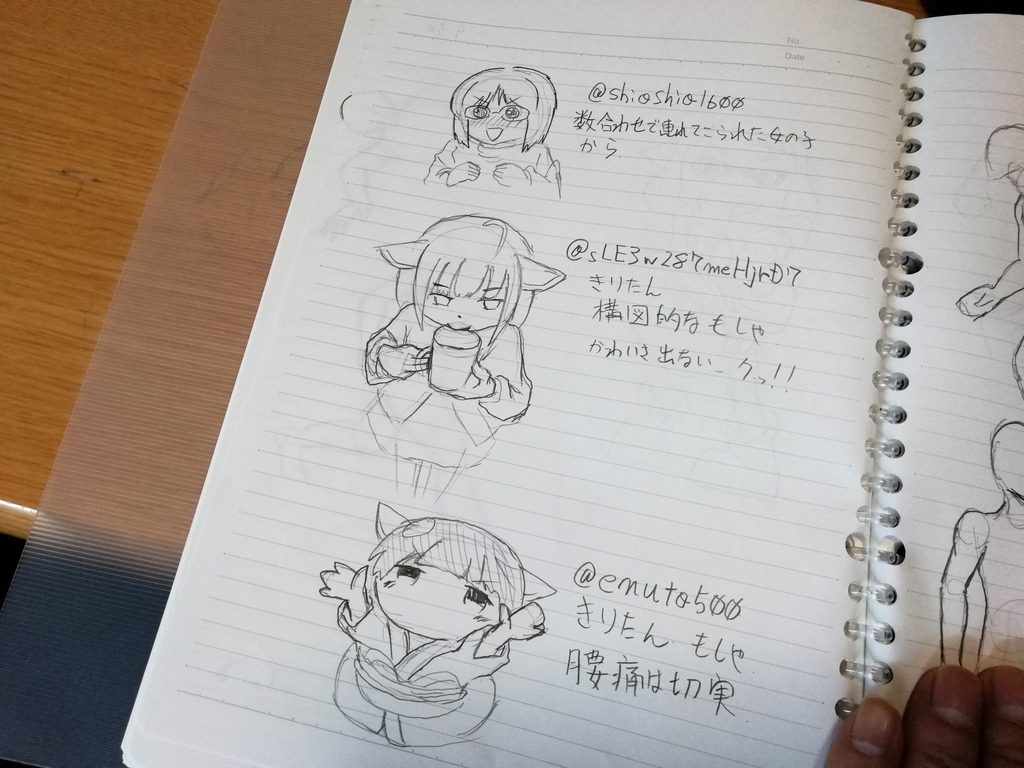 No.
Date
@shioshio1600
数合わせで連れてこられた女の子
から
@sLE3w287meHjrD7
きりたん
構図的なもしゃ
かわいさ出ない クっ!!
@enuto500
きりたん もしゃ
腰痛は切実